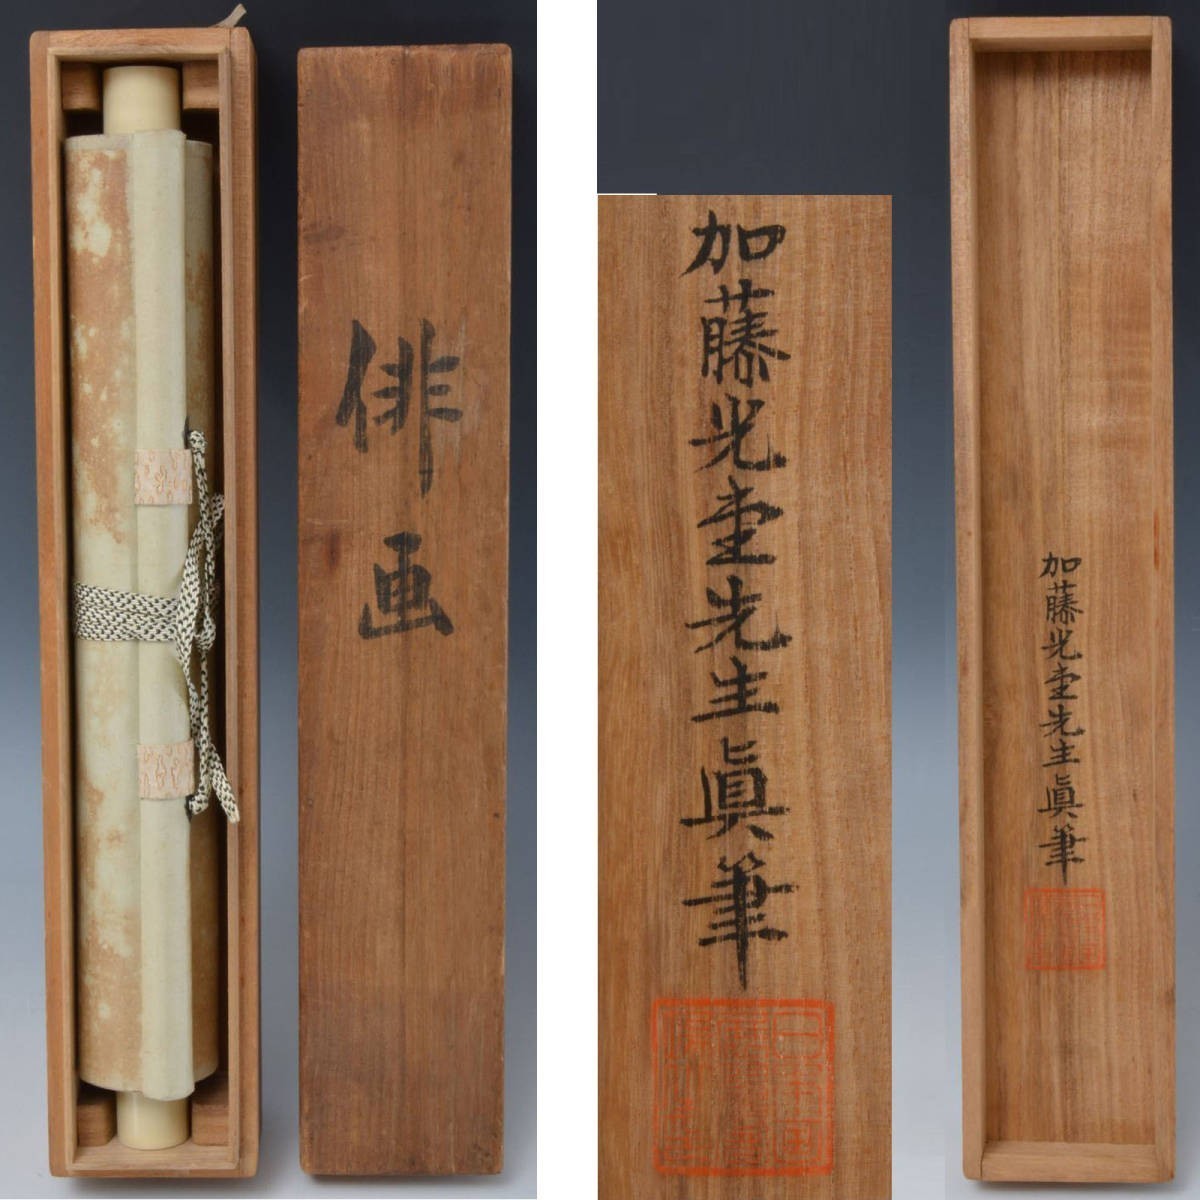 俳画
加藤光堂先生眞筆
加藤光堂先生眞筆